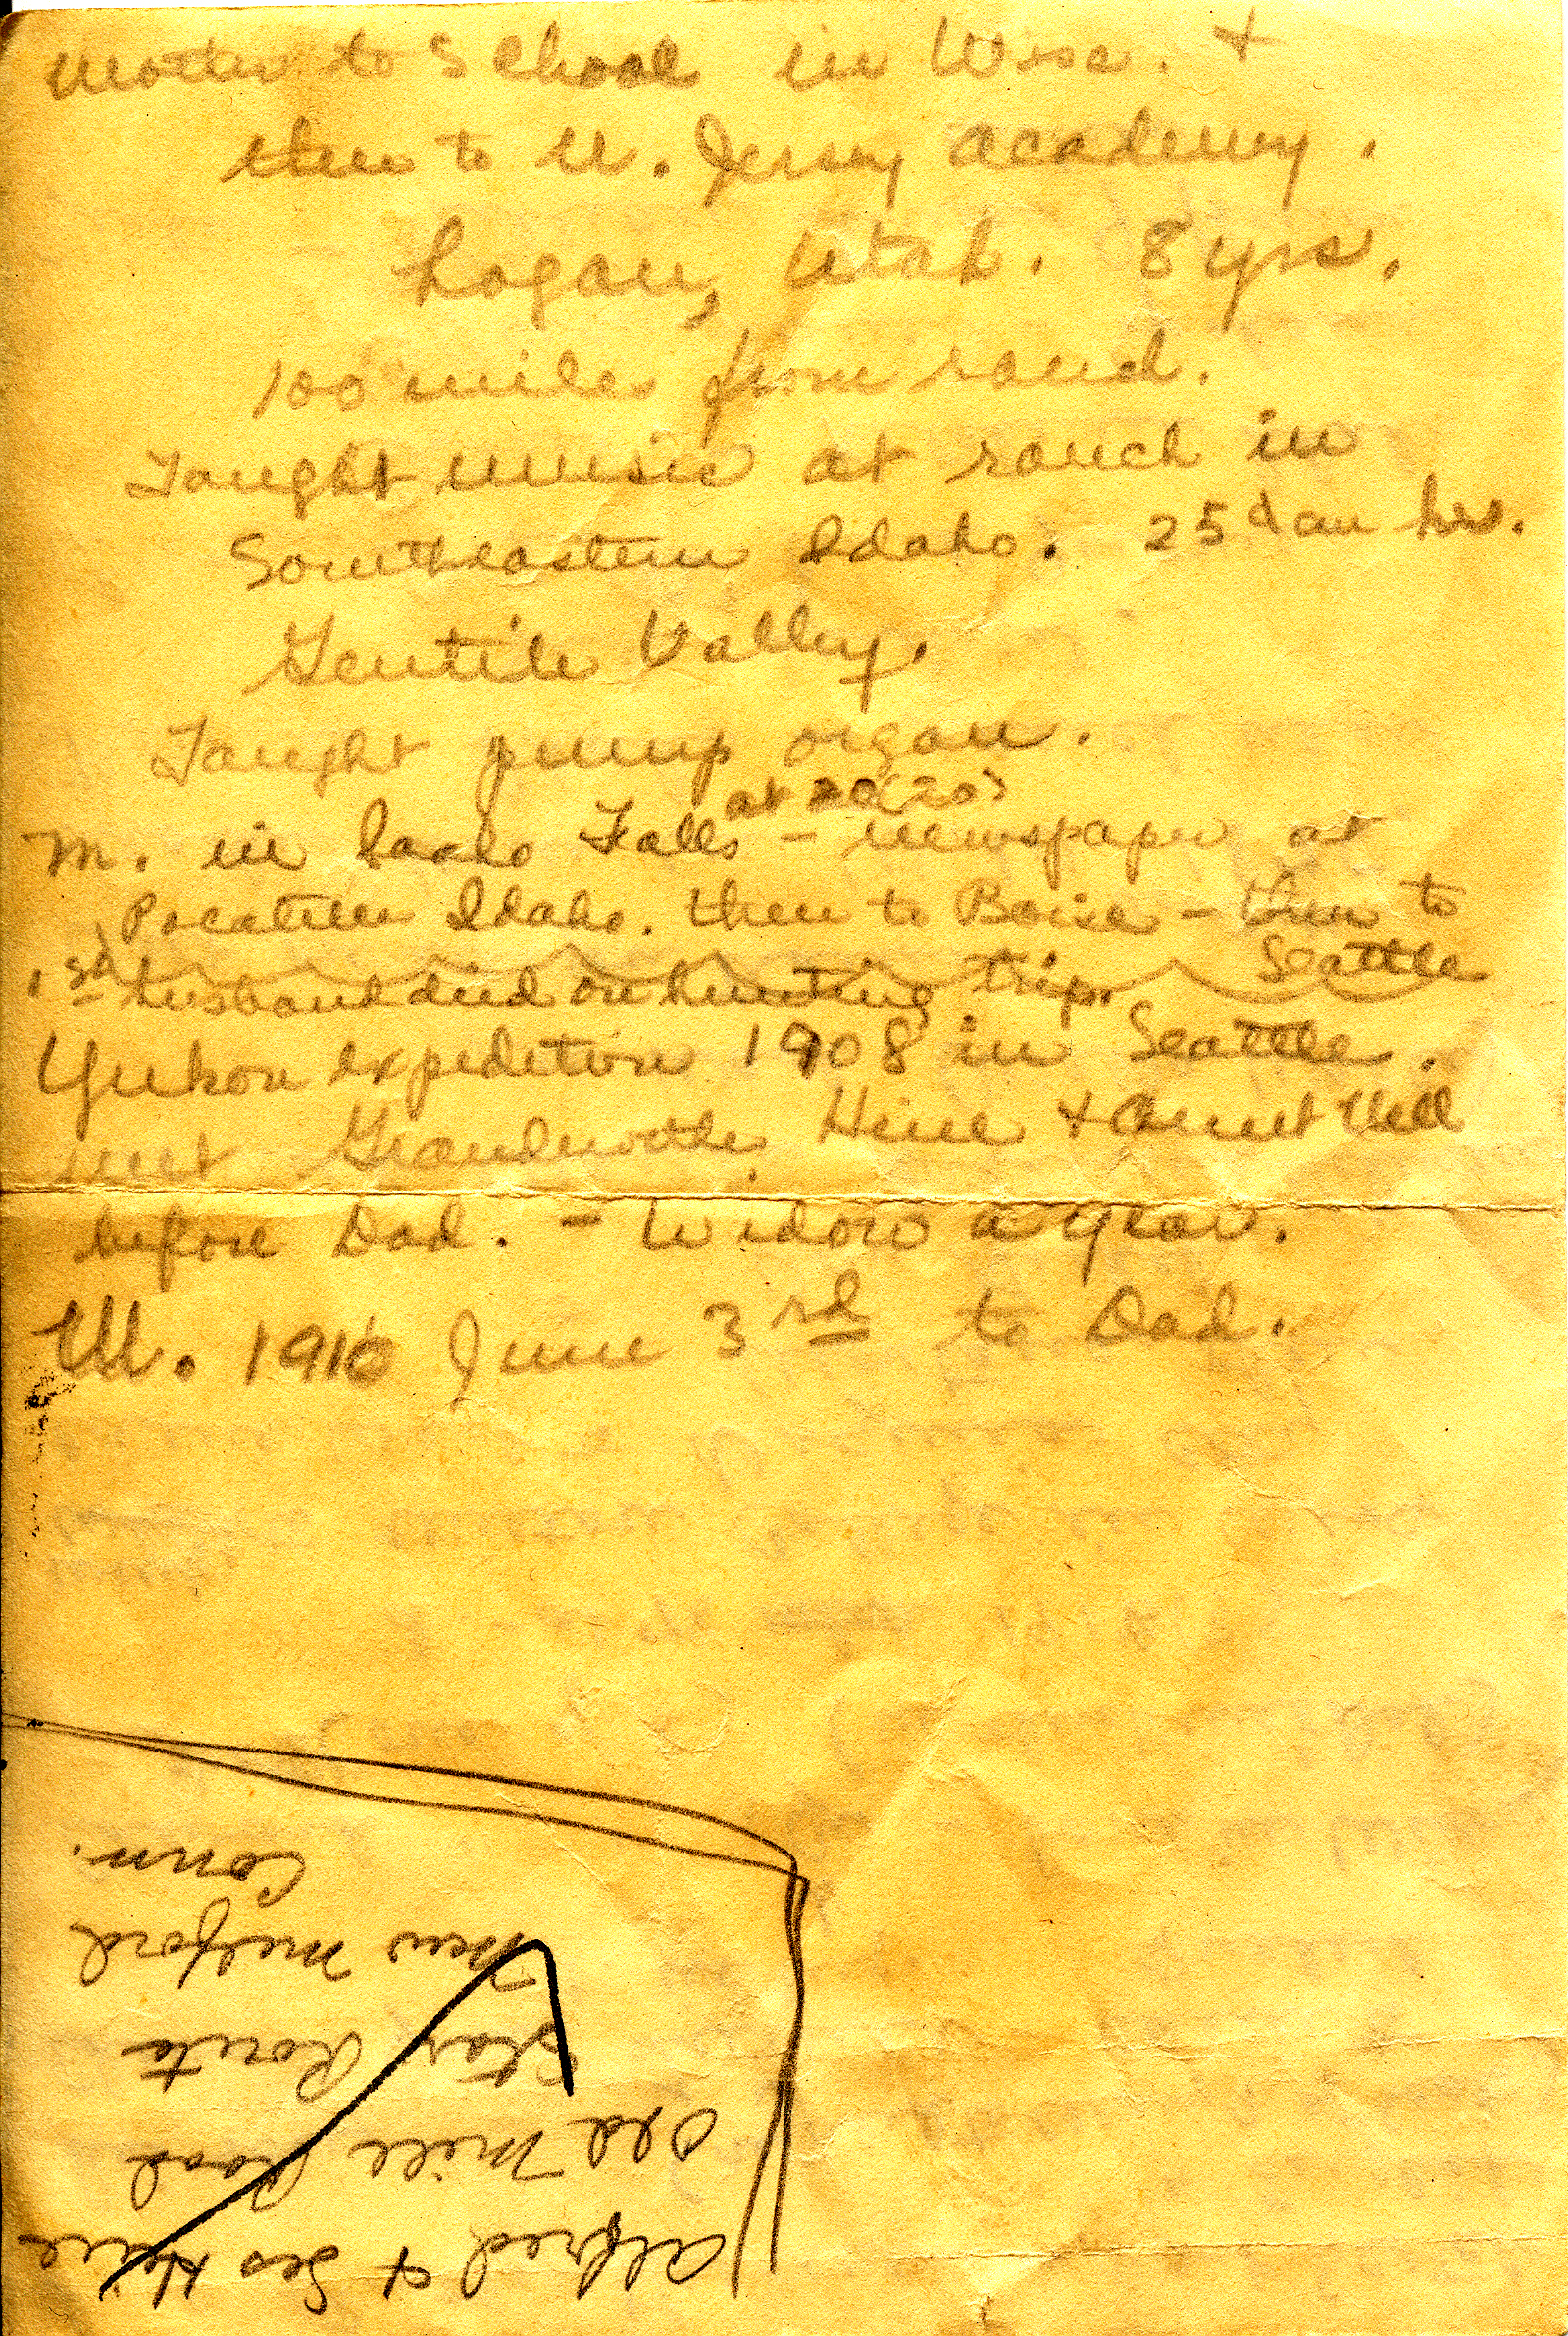 Mother to School in Wisc. +
then to N. Jersey Academy.
Logan, Utah. 8 yrs.
100 miles from ranch.
Taught music at ranch in
Southeastern Idaho. 25¢ an hr.
Gentile Valley.
Taught pump organ.
at 20 (20)
M. in Idaho Falls – newspaper at
Pocatello Idaho. then to Boise – then to
Seattle
1st husband died on hunting trip.
Yukon expedition 1908 in Seattle.
met Grandmother Heine + Aunt Nell
before Dad. – Widow a year.
M. 1910 June 3rd to Dad.
Alfred + Heine
Old Mill Road
Star Route
New Milford
Conn.